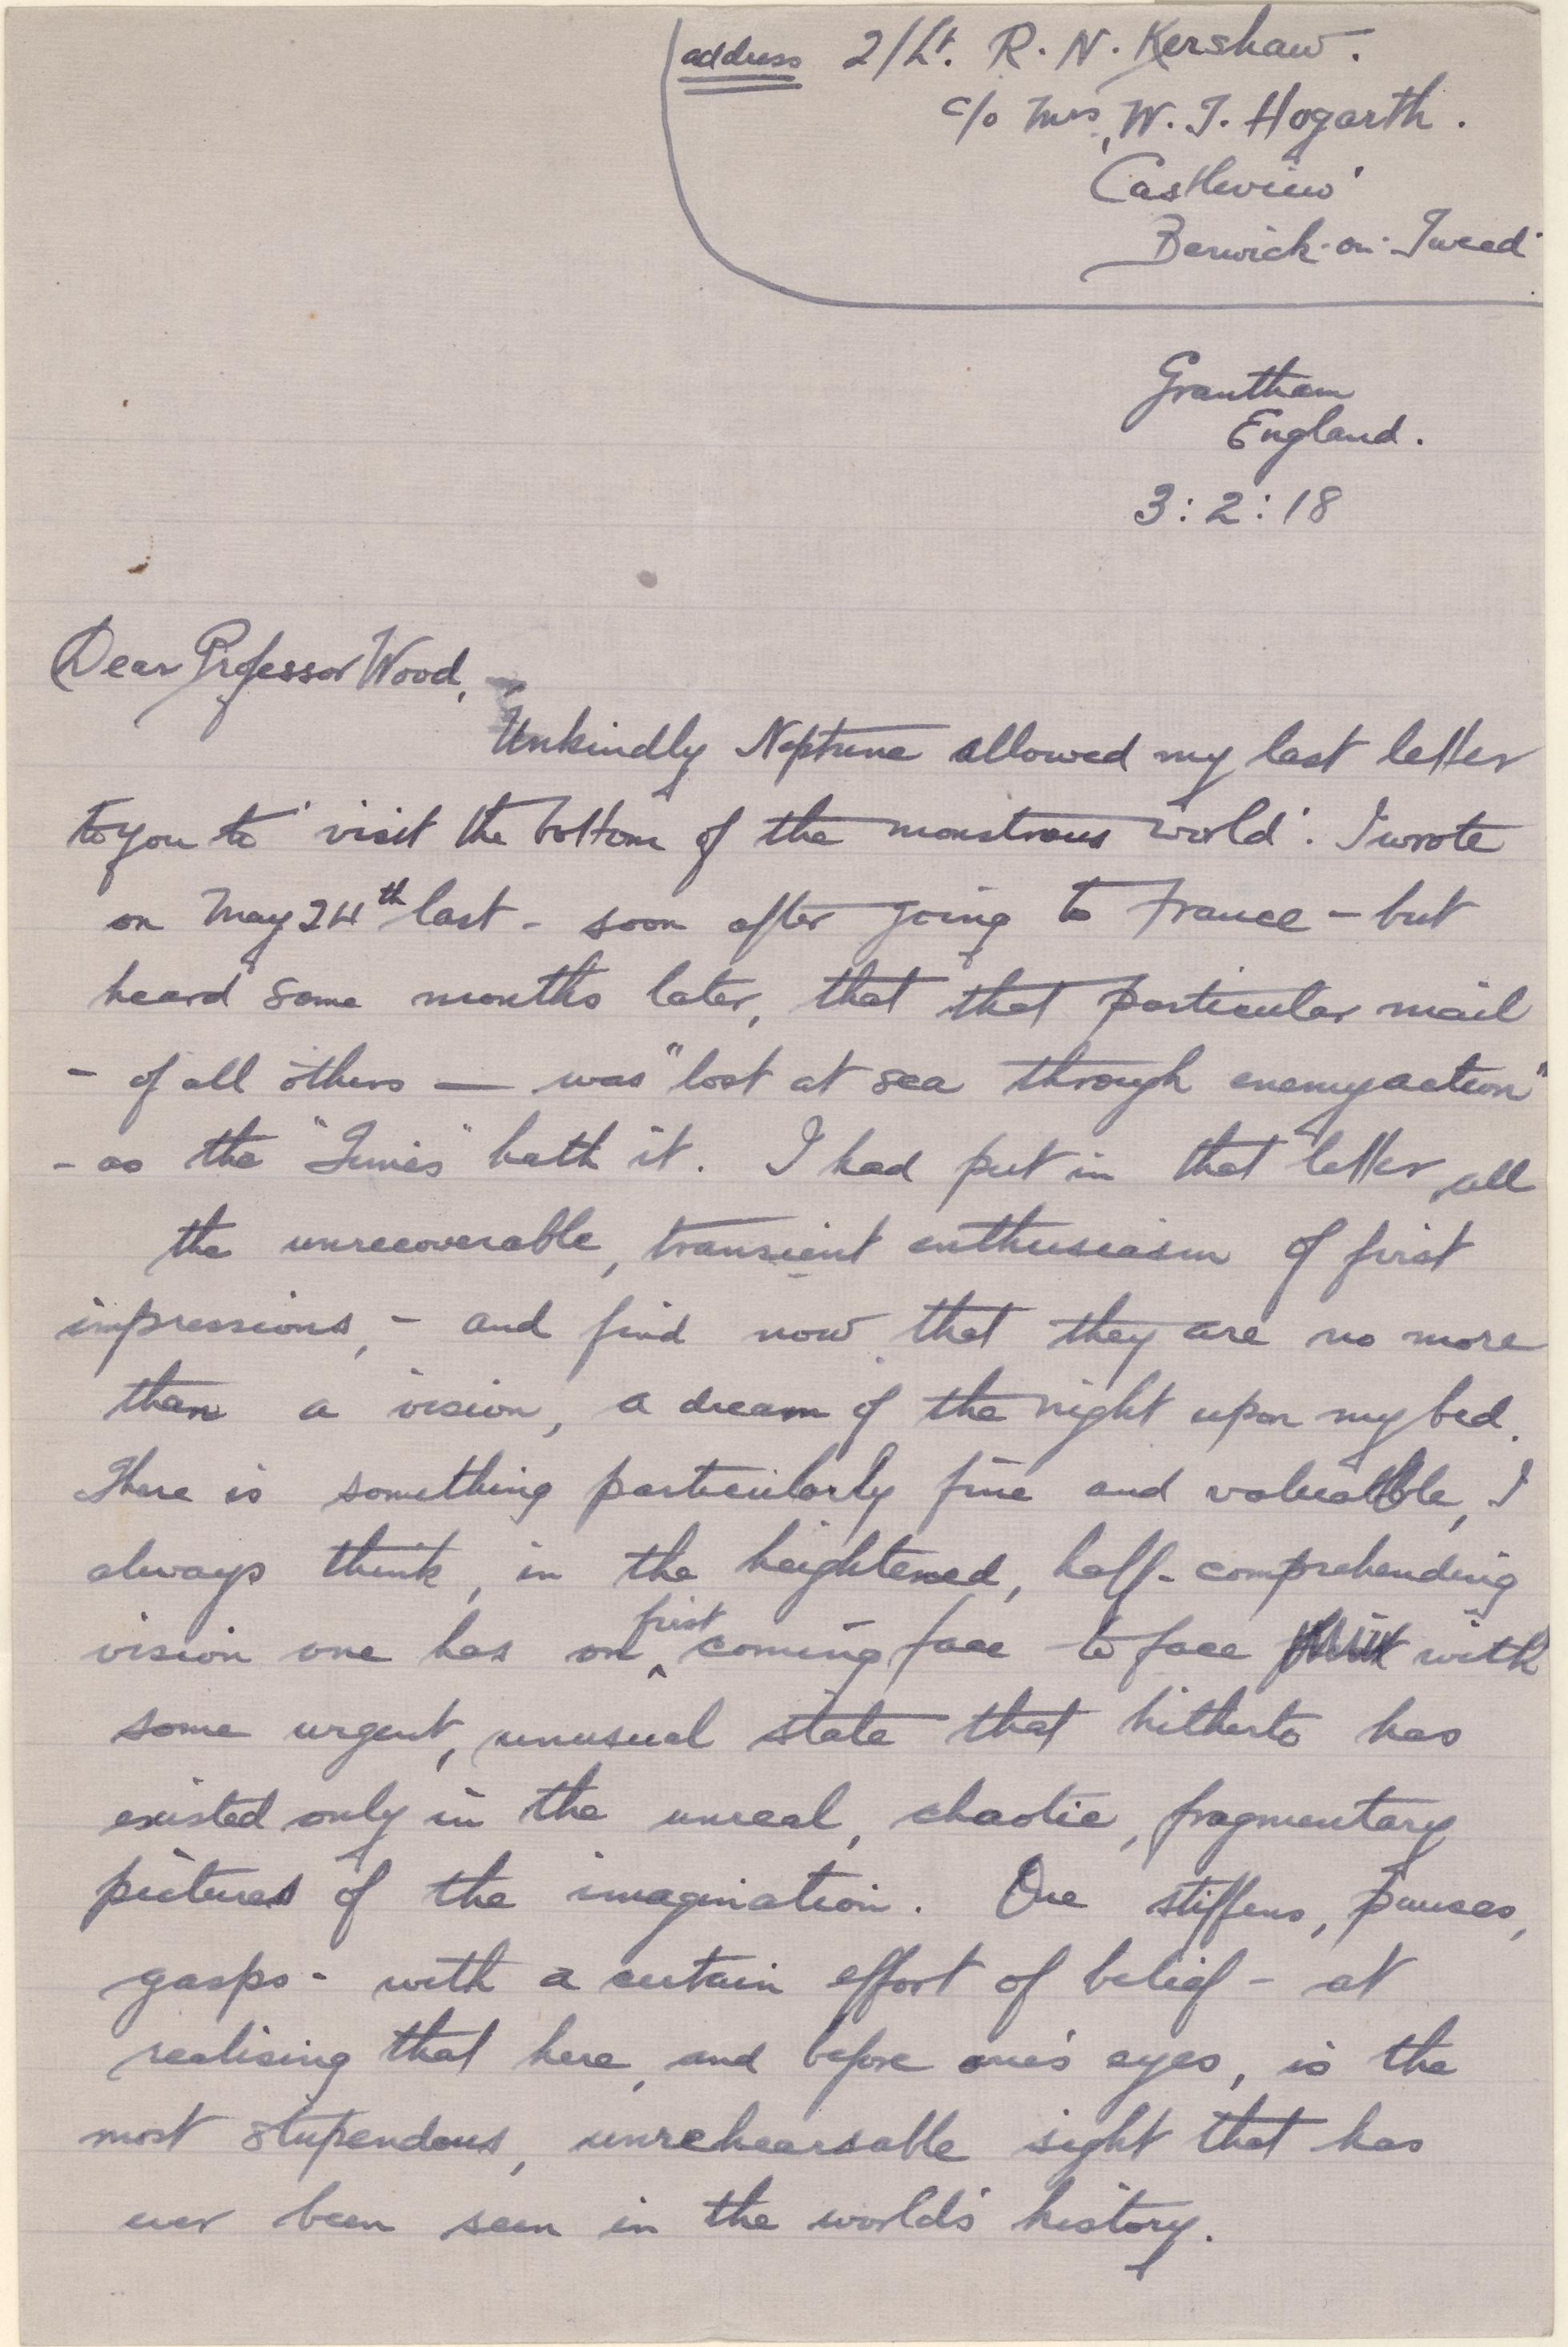 address 2/Lt. R. N. Kershaw.
c/o Mrs W. J. Hogarth.
'Castleview'
Berwick-on-Tweed
Grantham
England.
3:2:18
Dear Professor Wood,
Unkindly Neptune allowed my last letter
to you to 'visit the bottom of the monstrous world'. I wrote
on May 24th last - soon after going to France - but
heard some months later, that that particular mail
- of all others - was "lost at sea through enemy action"
- as the "Times" hath it. I had put in that letter all
the unrecoverable, transient enthusiasm of first
impressions, - and find now that they are no more
than a vision, a dream of the night upon my bed.
There is something particularly fine and valuable, I
always think, in the heightened, half-comprehending
vision one has on first coming face to face with
some urgent, unusual state that hitherto has
existed only in the unreal, chaotic, fragmentary
pictures of the imagination. One stiffens, pauses,
gasps - with a certain effort of belief - at
realising that here, and before one's eyes, is the
most stupendous, unrehearsable sight that has
ever been seen in the world's history.